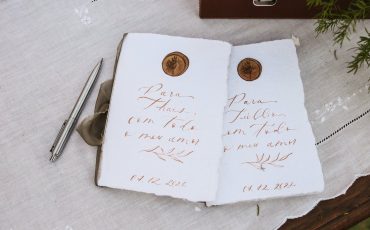 Para
Thais,
com todo
o meu amor
17.12.2022
Para
com todo
o meu amor
17.12.2022